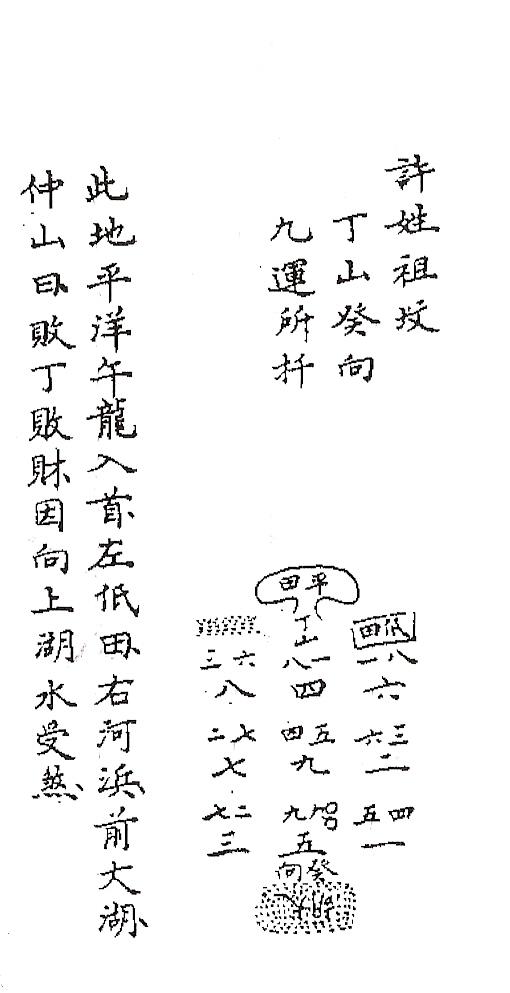 許姓祖坟
丁山癸向
九運所扦
平田
丁山
低田
八一 一八 六三
六 四 八
三六 五四 七二
二 九 七
四五 九 二七
一 五 三
癸向
此地平洋午龍入首左低田右河浜前大湖
仲山曰敗丁敗財因向上湖水受煞